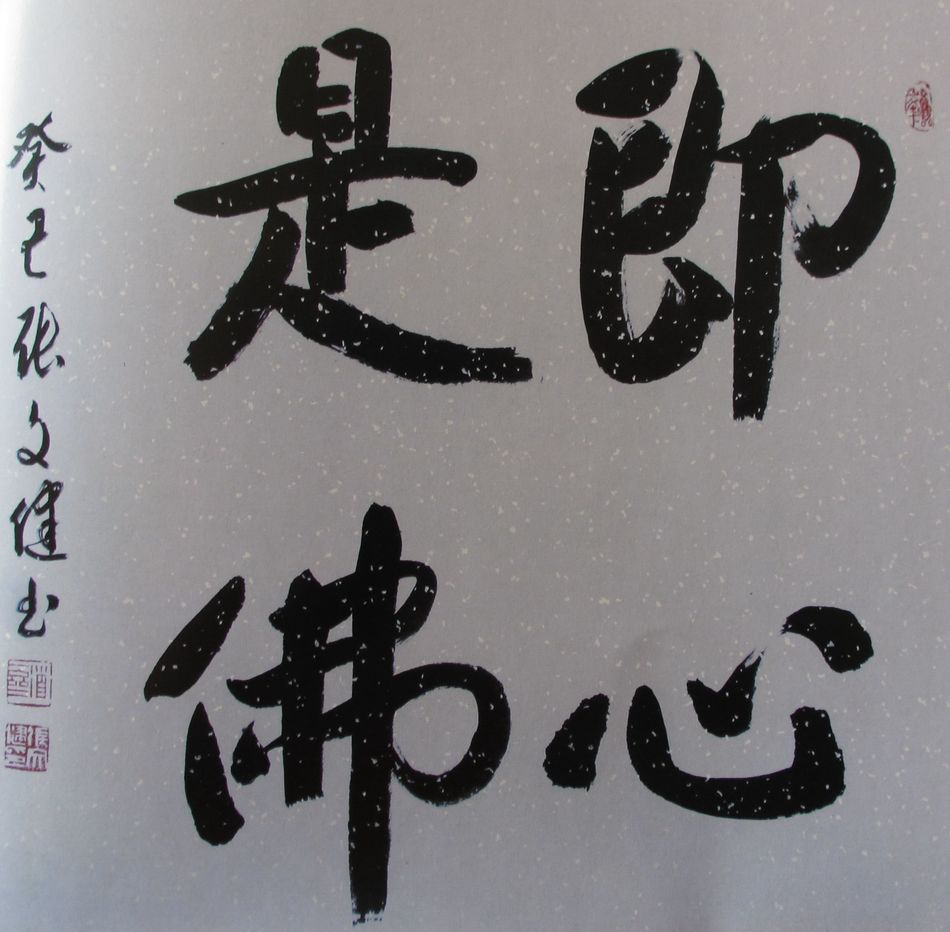 即心
是佛
癸巳张文健书